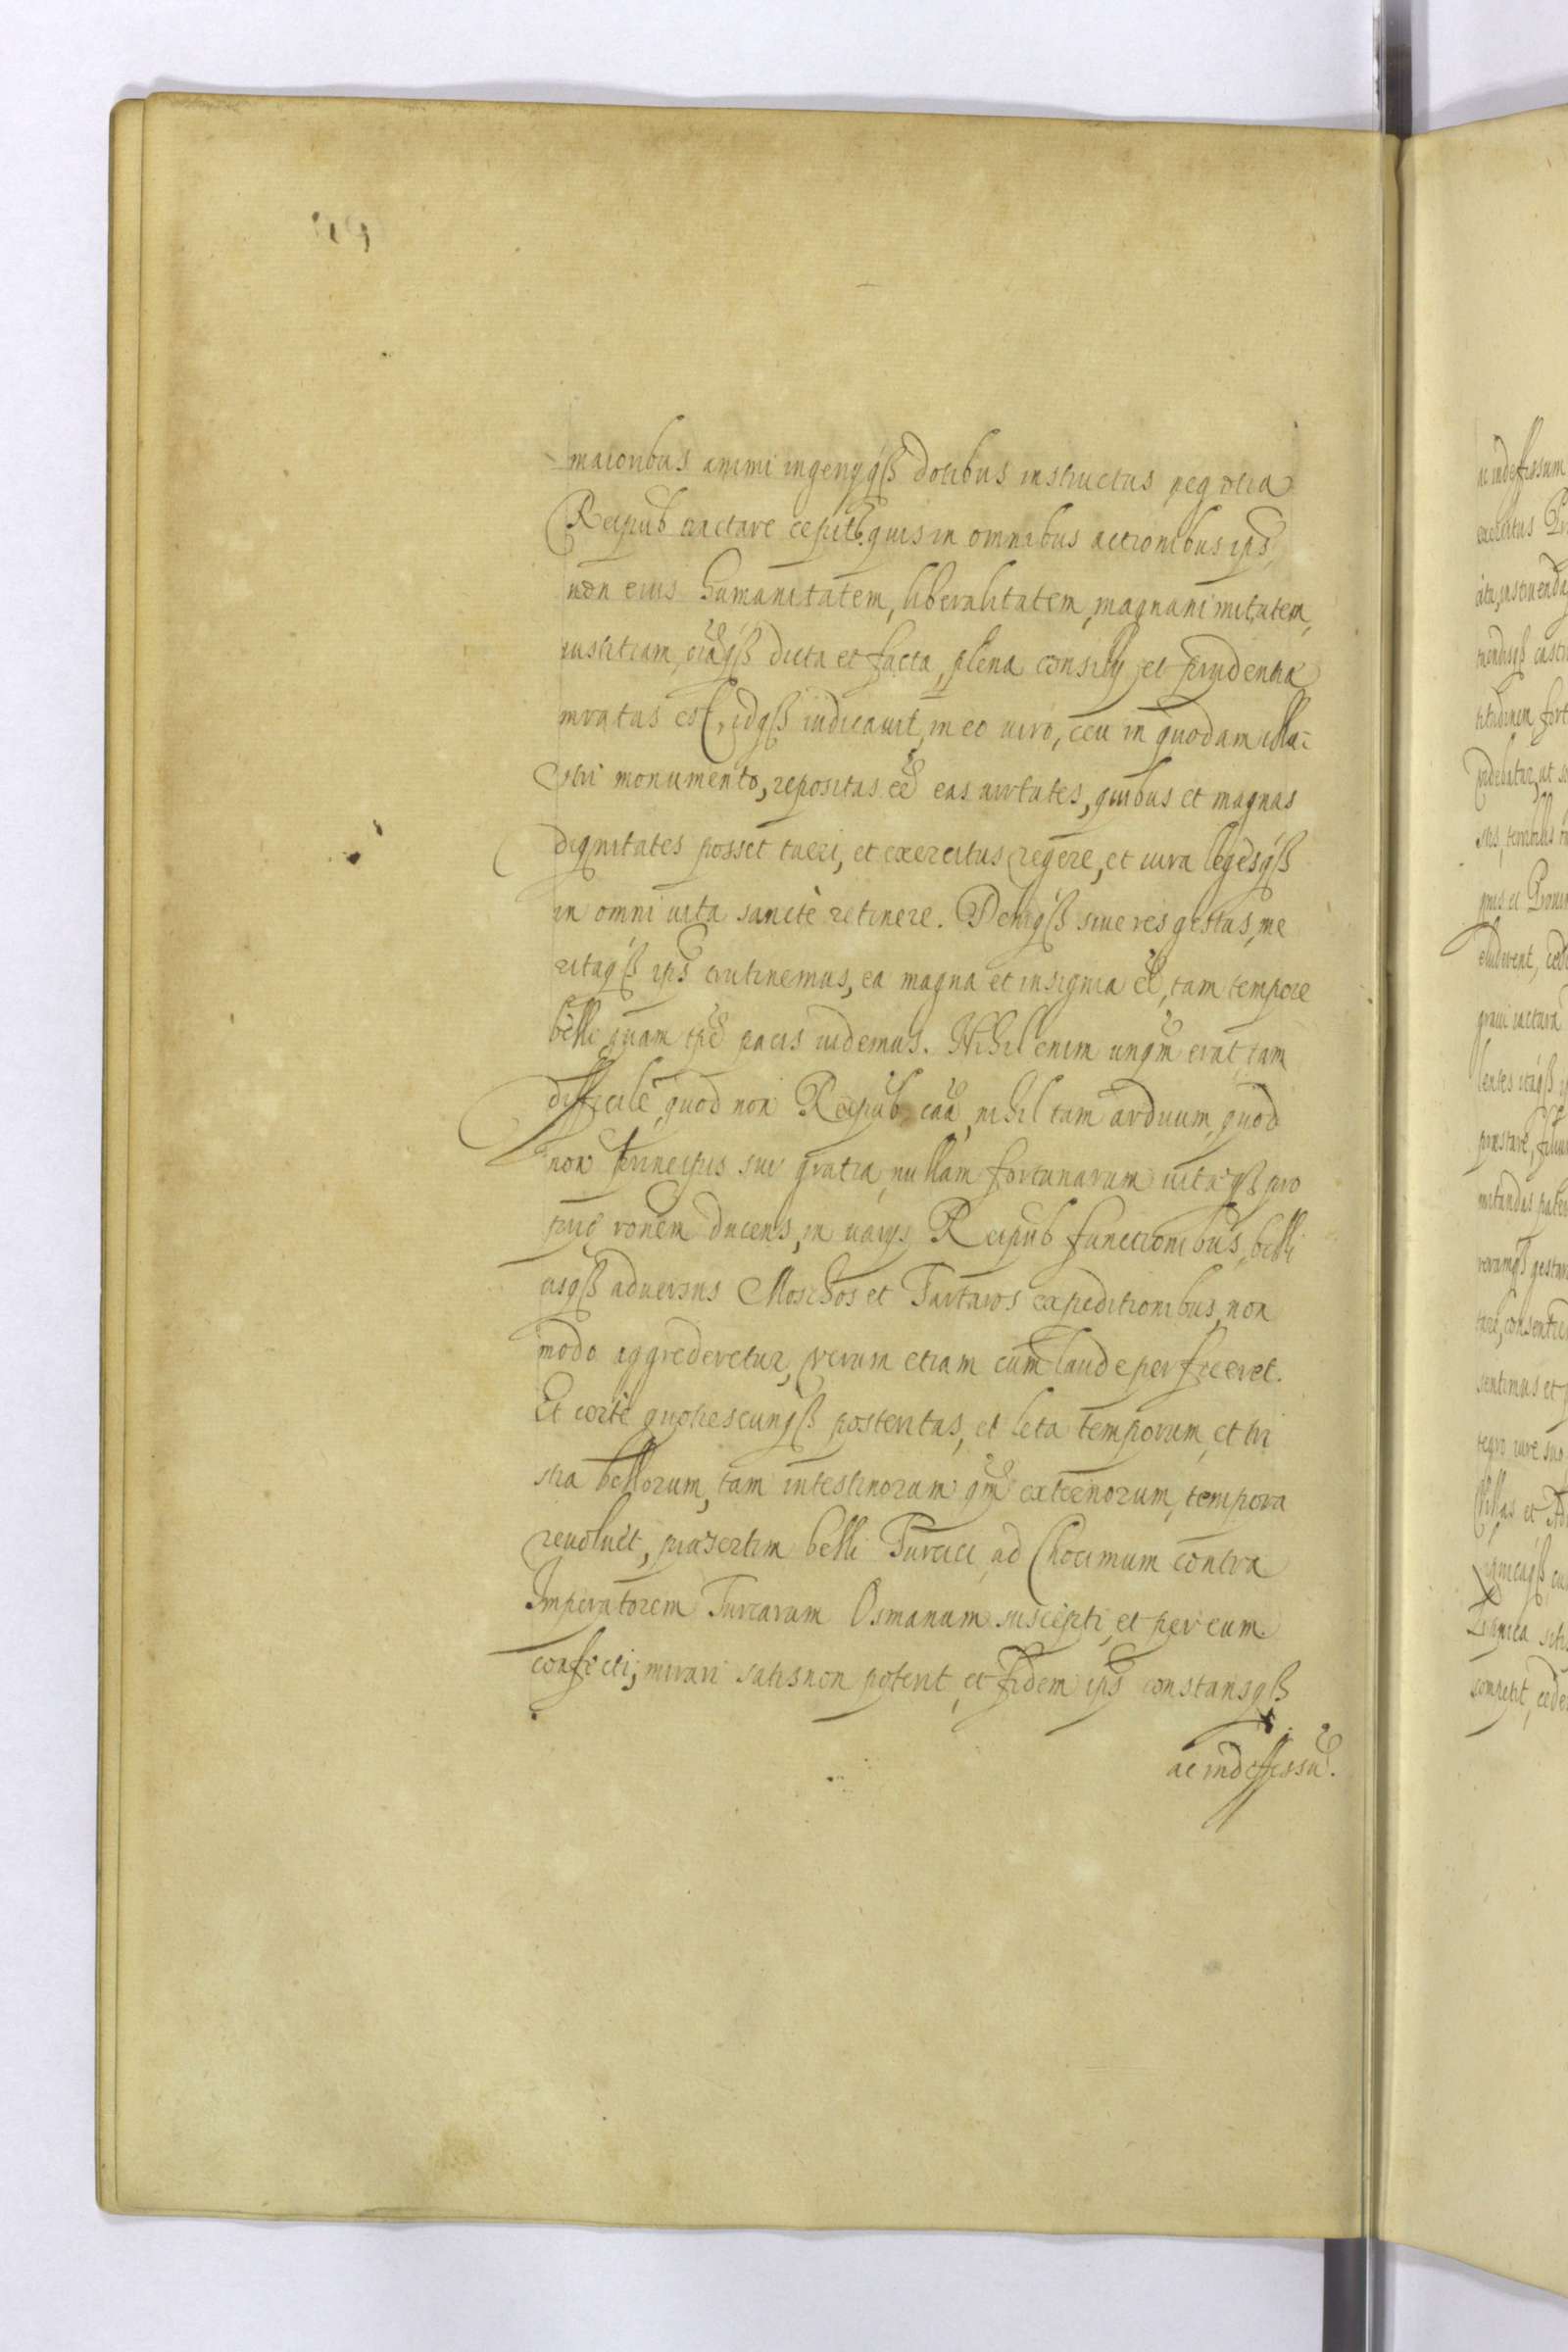 maioribus animi ingenyqß dotibus instructus negotia
Reipub tractare cepit. quis in omnibus actionibus ips
non eius humanitatem, liberalitatem, magnanimitatem,
iustitiam, oiaqß dicta et facta, plena consily et prudentia
miratus est, idqß iudicauit, in eo uiro, ceu in quodam illu=
stri monumento, repositas eē eas uirtutes, quibus et magnas
dignitates posset tueri, et exercitus regere, et iura legesqß
in omni uita sanctè retinere. Deniqß siue res gestas, me
ritaqß ips crutinemus, ea magna et insignia eē, tam tempore
belli quam tpe pacis uidemus. Nihil enim unqm erat tam
difficile quod non Reipub caa, nihil tam arduum, quod
non Principis sui gratia, nullam fortunarum uitaeqß pro
priae ronem ducens, in uarys Reipub functionibus, belli
cisqß aduersus Moschos et Tartaros expeditionibus, non
modo aggrederetur, verum etiam cum laude perficeret.
Et certè quotiescunqß posteritas, et leta temporum, et tri
stia bellorum, tam intestinorum qm externorum, tempora
reuoluet, praesertim belli Turcici, ad Chocimum contra
Imperatorem Turcarum Osmanum suscepti, et per eum
confecti, mirari satis non poterit, et fidem ips constansqß
ac indeffessū.